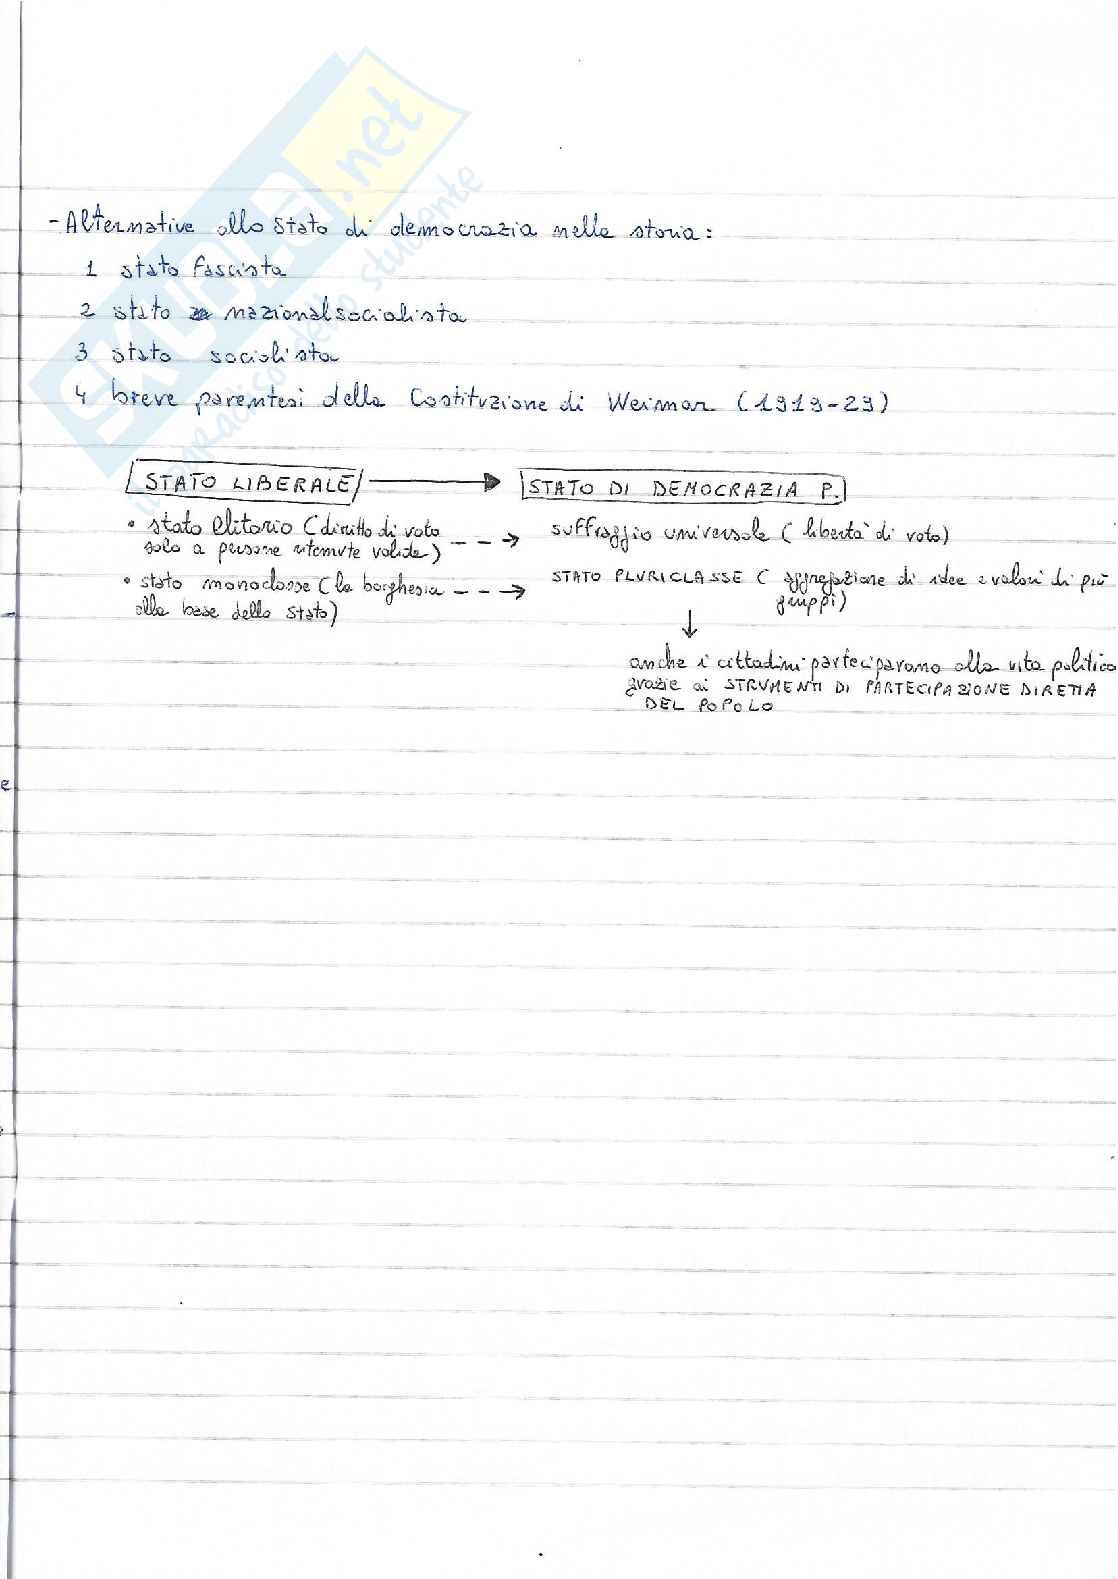 SKUOLA.net
un paradiso dello studente
- Alternative allo stato di democrazia nella storia:
1 stato fascista
2 stato nazionalsocialista
3 stato socialista
4 breve parentesi della Costituzione di Weimar (1919-29)
STATO LIBERALE
STATO DI DEMOCRAZIA P.
• stato elitario (diritto di voto
solo a persone ritenute valide)
suffraggio universale (libertà di voto)
• stato monoclasse (la borghesia
alla base dello stato)
STATO PLURICLASSE (aggregazione di idee e valori di più
gruppi)
anche i cittadini partecipavano alla vita politica
grazie ai STRUMENTI DI PARTECIPAZIONE DIRETTA
DEL POPOLO
e